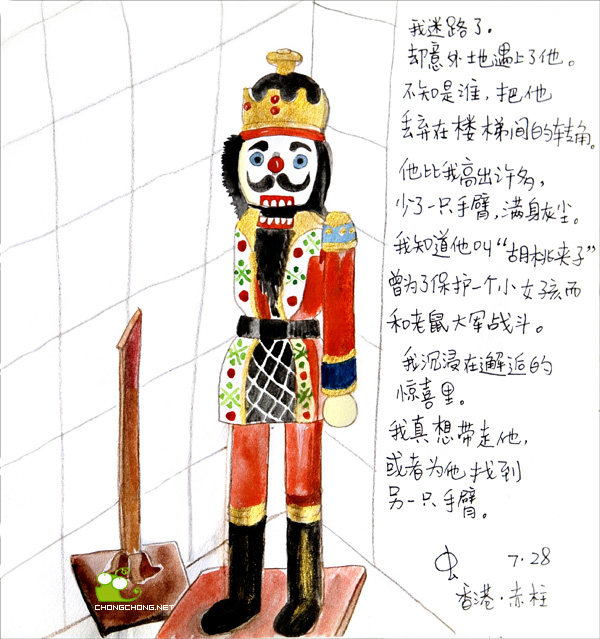 我迷路了.
却意外地遇上了他。
不知是谁，把他
丢弃在楼梯间的转角。
他比我高出许多，
少了一只手臂，满身灰尘。
我知道他叫“胡桃夹子”
曾为了保护一个小女孩而
和老鼠大军战斗。
我沉浸在邂逅的
惊喜里。
我真想带走他，
或者为他找到
另一只手臂。
虫 7·28
香港·赤柱
CHONGCHONG.NET